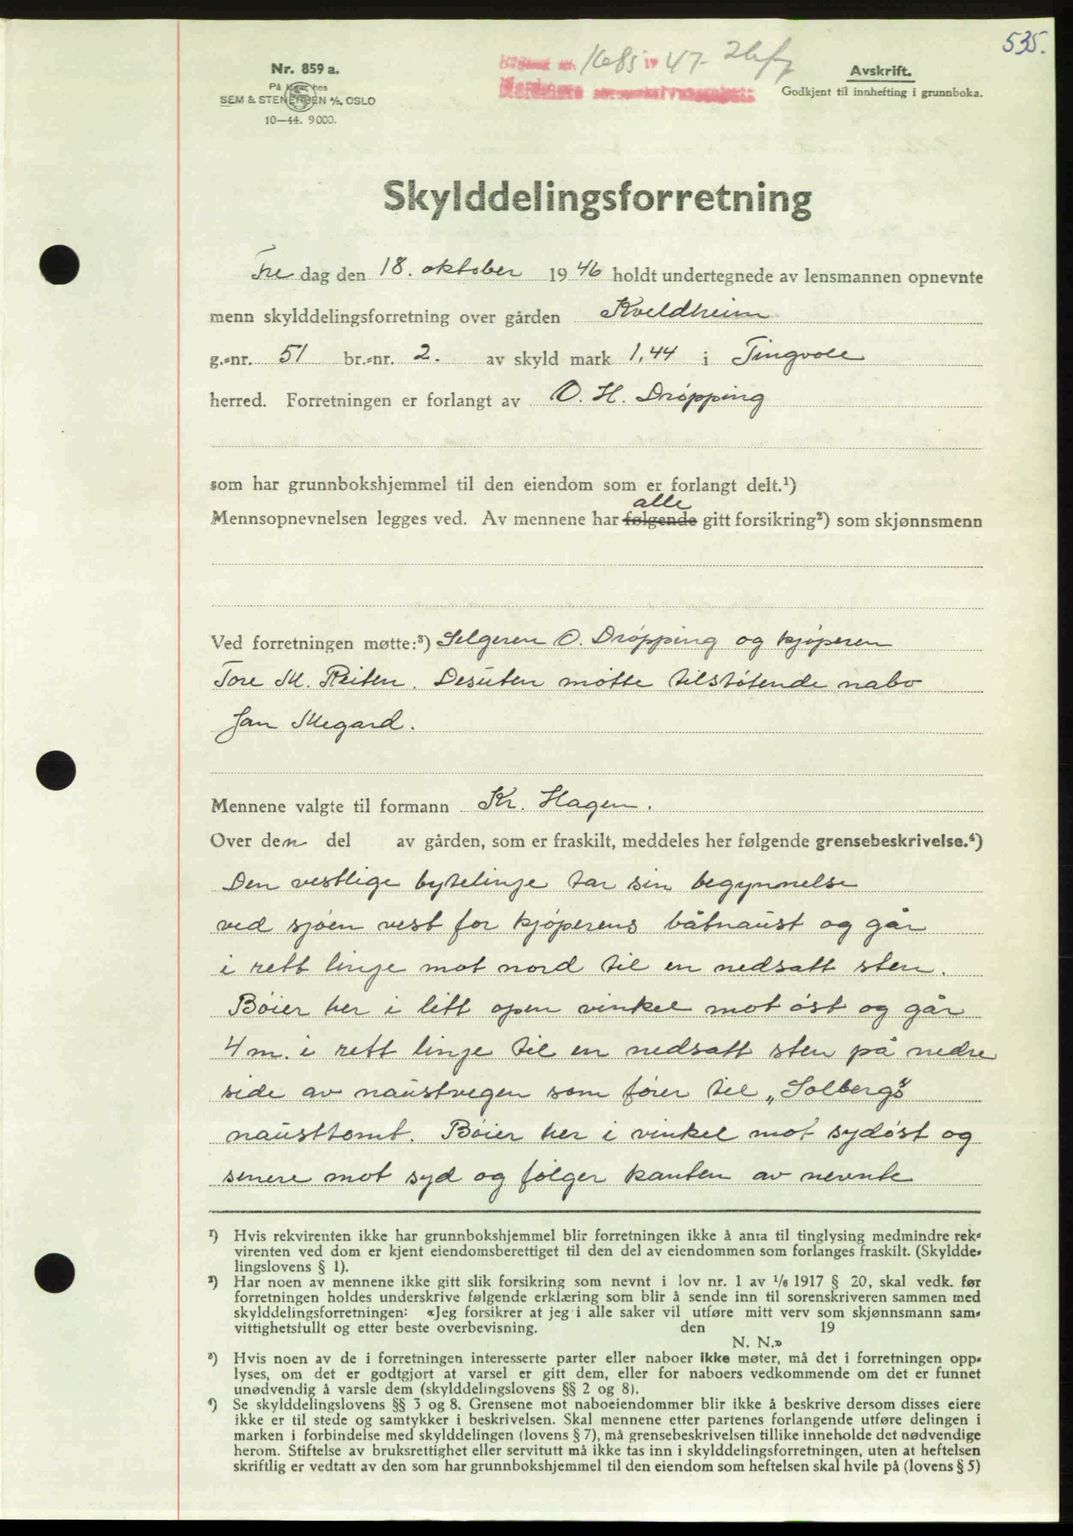 535.
Nr. 859 a.
På lager hos
SEM & STENERSEN A/S, OSLO
10—44. 9000.
1685 19 47
Nordmøre sorenskriverembete
Avskrift.
Godkjent til innhefting i grunnboka.
Skylddelingsforretning
Fre dag den 18. oktober 1946 holdt undertegnede av lensmannen opnevnte
menn skylddelingsforretning over gården Kveldheim
g.-nr. 51 br.-nr. 2. av skyld mark 1,44 i Tingvoll
herred. Forretningen er forlangt av O. H. Drøpping
som har grunnbokshjemmel til den eiendom som er forlangt delt.¹)
alle
Mennsopnevnelsen legges ved. Av mennene har følgende gitt forsikring²) som skjønnsmenn
Ved forretningen møtte:³) Selgeren O. Drøpping og kjøperen
Tore M. Reiten. Desuten møtte tilstøtende nabo
Jan Megard.
Mennene valgte til formann Kr. Hagen.
Over den del av gården, som er fraskilt, meddeles her følgende grensebeskrivelse.⁴)
Den vestlige bytelinje tar sin begynnelse
ved sjøen vest for kjøperens båtnaust og går
i rett linje mot nord til en nedsatt sten.
Bøier her i litt open vinkel mot øst og går
4 m. i rett linje til en nedsatt sten på nedre
side av naustvegen som fører til „Solbergs"
nausttomt. Bøier her i vinkel mot sydøst og
senere mot syd og følger kanten av nevnte
¹) Hvis rekvirenten ikke har grunnbokshjemmel blir forretningen ikke å anta til tinglysing medmindre rek-
virenten ved dom er kjent eiendomsberettiget til den del av eiendommen som forlanges fraskilt. (Skyldde-
lingslovens § 1).
²) Har noen av mennene ikke gitt slik forsikring som nevnt i lov nr. 1 av 1/6 1917 § 20, skal vedk. før
forretningen holdes underskrive følgende erklæring som blir å sende inn til sorenskriveren sammen med
skylddelingsforretningen: «Jeg forsikrer at jeg i alle saker vil utføre mitt verv som skjønnsmann sam-
vittighetsfullt og etter beste overbevisning. den 19
N. N.»
³) Hvis noen av de i forretningen interesserte parter eller naboer ikke møter, må det i forretningen opp-
lyses, om det er godtgjort at varsel er gitt dem, eller for naboers vedkommende om det er funnet
unødvendig å varsle dem (skylddelingslovens §§ 2 og 8).
⁴) Se skylddelingslovens §§ 3 og 8. Grensene mot naboeiendommer blir ikke å beskrive dersom disses eiere
ikke er til stede og samtykker i beskrivelsen. Skal mennene etter partenes forlangende utføre delingen i
marken i forbindelse med skylddelingen (lovens § 7), må grensebeskrivelsen tillike inneholde det nødvendige
herom. Stiftelse av bruksrettighet eller servitutt må ikke tas inn i skylddelingsforretningen, uten at heftelsen
skriftlig er vedtatt av den som har grunnbokshjemmel til den eiendom som heftelsen skal hvile på (lovens § 5)